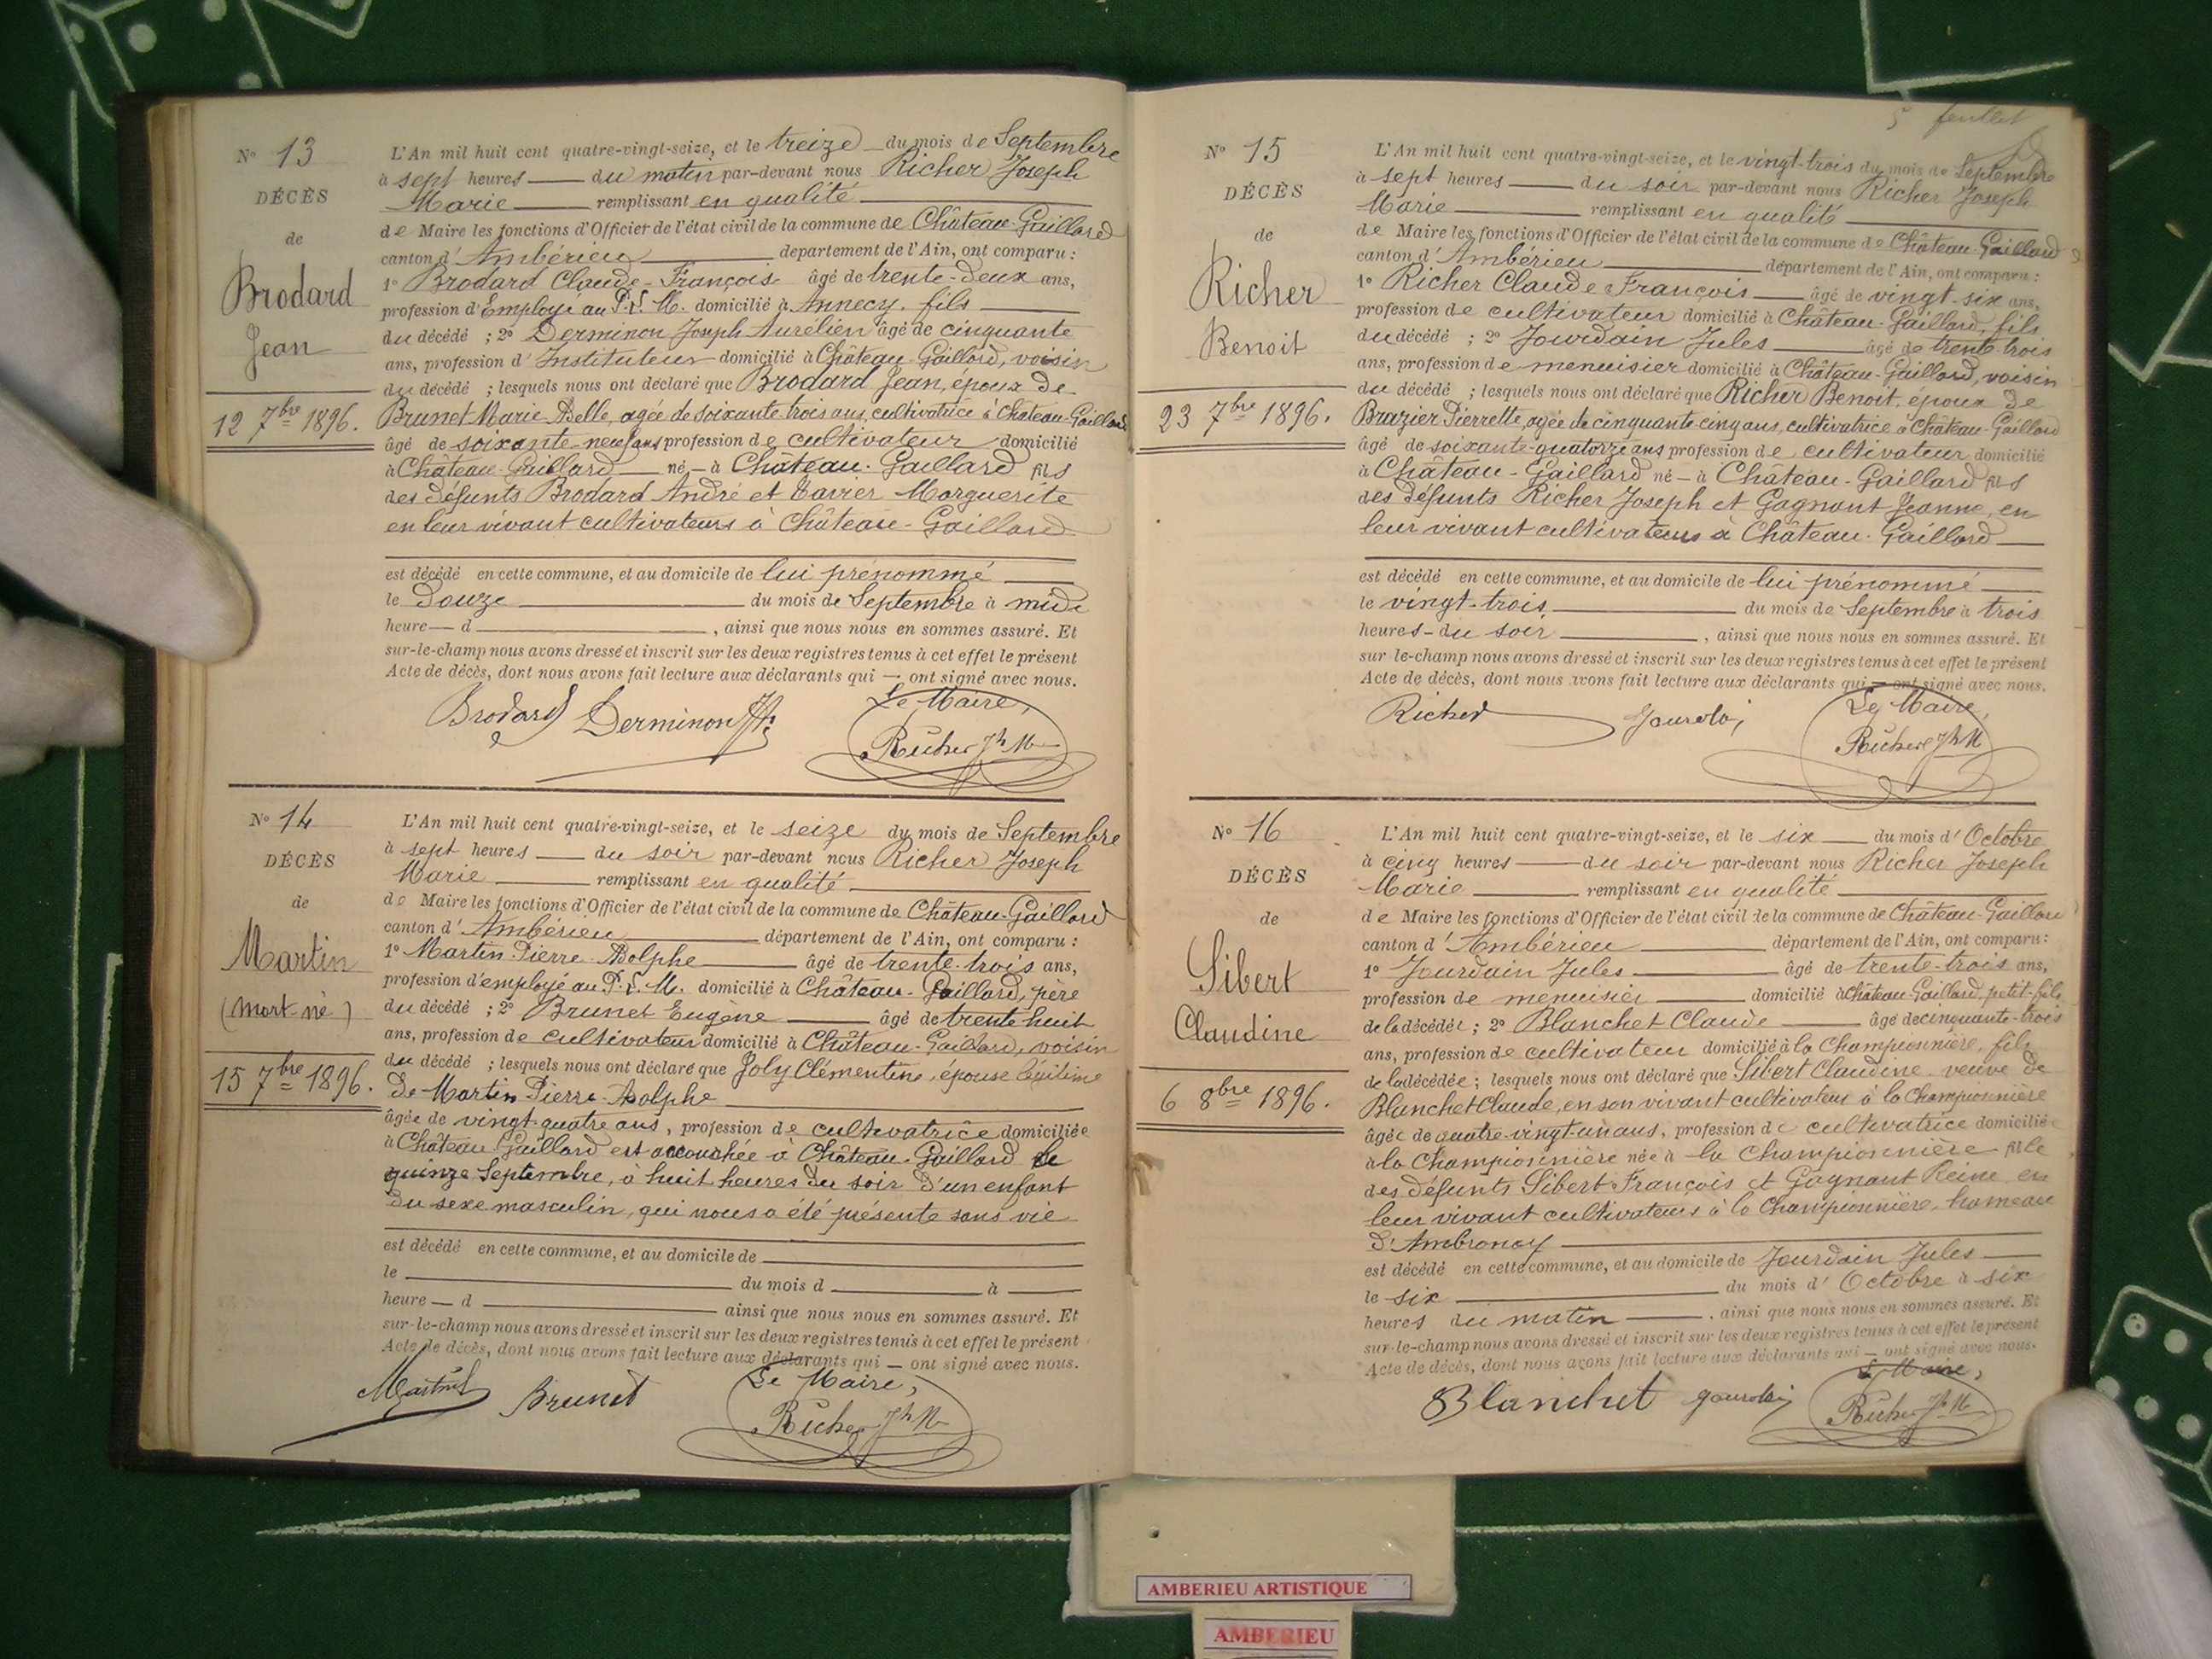 N° 13
DÉCÈS
de
Brodard
Jean
12 7bre 1896.
L'An mil huit cent quatre-vingt-seize, et le treize du mois de Septembre
à sept heures du matin par-devant nous Richer Joseph
Marie remplissant en qualité
de Maire les fonctions d'Officier de l'état civil de la commune de Château-Gaillard
canton d'Ambérieu département de l'Ain, ont comparu :
1° Brodard Claude-François âgé de trente-deux ans,
profession d'Employé au P.L.M. domicilié à Annecy, fils
du décédé ; 2° Derminon Joseph Aurélien âgé de cinquante
ans, profession d'Instituteur domicilié à Château-Gaillard, voisin
du décédé ; lesquels nous ont déclaré que Brodard Jean, époux de
Brunet Marie-Adelle, agée de soixante trois ans, cultivatrice à Château-Gaillard
âgé de soixante-neuf ans profession de cultivateur domicilié
à Château-Gaillard né à Château-Gaillard fils
des défunts Brodard André et Tavier Marguerite
en leur vivant cultivateurs à Château-Gaillard
est décédé en cette commune, et au domicile de lui prénommé
le douze du mois de Septembre à midi
heure d , ainsi que nous nous en sommes assuré. Et
sur-le-champ nous avons dressé et inscrit sur les deux registres tenus à cet effet le présent
Acte de décès, dont nous avons fait lecture aux déclarants qui — ont signé avec nous.
Brodard Derminon Le Maire,
Richer Jh M
N° 14
DÉCÈS
de
Martin
(mort-né)
15 7bre 1896.
L'An mil huit cent quatre-vingt-seize, et le seize du mois de Septembre
à sept heures du soir par-devant nous Richer Joseph
Marie remplissant en qualité
de Maire les fonctions d'Officier de l'état civil de la commune de Château-Gaillard
canton d'Ambérieu département de l'Ain, ont comparu :
1° Martin Pierre-Adolphe âgé de trente-trois ans,
profession d'employé au P.L.M. domicilié à Château-Gaillard, père
du décédé ; 2° Brunet Eugène âgé de trente-huit
ans, profession de cultivateur domicilié à Château-Gaillard, voisin
du décédé ; lesquels nous ont déclaré que Joly Clémentine, épouse légitime
de Martin Pierre-Adolphe
âgée de vingt-quatre ans, profession de cultivatrice domiciliée
à Château Gaillard est accouchée à Château-Gaillard le
quinze Septembre, à huit heures du soir d'un enfant
du sexe masculin, qui nous a été présenté sans vie
est décédé en cette commune, et au domicile de
le du mois d à
heure d ainsi que nous nous en sommes assuré. Et
sur-le-champ nous avons dressé et inscrit sur les deux registres tenus à cet effet le présent
Acte de décès, dont nous avons fait lecture aux déclarants qui — ont signé avec nous.
Martin Brunet Le Maire,
Richer Jh M
5 feuillet
N° 15
DÉCÈS
de
Richer
Benoit
23 7bre 1896.
L'An mil huit cent quatre-vingt-seize, et le vingt-trois du mois de Septembre
à sept heures du soir par-devant nous Richer Joseph
Marie remplissant en qualité
de Maire les fonctions d'Officier de l'état civil de la commune de Château Gaillard
canton d'Ambérieu département de l'Ain, ont comparu :
1° Richer Claude François âgé de vingt-six ans,
profession de cultivateur domicilié à Château-Gaillard, fils
du décédé ; 2° Jourdain Jules âgé de trente-trois
ans, profession de menuisier domicilié à Château-Gaillard, voisin
du décédé ; lesquels nous ont déclaré que Richer Benoit, époux de
Brazier Pierrette, agée de cinquante-cinq ans, cultivatrice à Château-Gaillard
âgé de soixante-quatorze ans profession de cultivateur domicilié
à Château-Gaillard né à Château-Gaillard fils
des défunts Richer Joseph et Gagnant Jeanne, en
leur vivant cultivateurs à Château-Gaillard
est décédé en cette commune, et au domicile de lui prénommé
le vingt-trois du mois de Septembre à trois
heures du soir , ainsi que nous nous en sommes assuré. Et
sur-le-champ nous avons dressé et inscrit sur les deux registres tenus à cet effet le présent
Acte de décès, dont nous avons fait lecture aux déclarants qui — ont signé avec nous.
Richer Jourdain Le Maire,
Richer Jh M
N° 16
DÉCÈS
de
Sibert
Claudine
6 8bre 1896.
L'An mil huit cent quatre-vingt-seize, et le six du mois d'Octobre
à cinq heures du soir par-devant nous Richer Joseph
Marie remplissant en qualité
de Maire les fonctions d'Officier de l'état civil de la commune de Château-Gaillard
canton d'Ambérieu département de l'Ain, ont comparu :
1° Jourdain Jules âgé de trente-trois ans,
profession de menuisier domicilié à Château-Gaillard, petit-fils
de la décédée ; 2° Blanchet Claude âgé de cinquante-trois
ans, profession de cultivateur domicilié à la Championnière, fils
de la décédée ; lesquels nous ont déclaré que Sibert Claudine veuve de
Blanchet Claude, en son vivant cultivateur à la Championnière
âgée de quatre-vingt-un ans, profession de cultivatrice domiciliée
à la Championnière née à la Championnière fille
des défunts Sibert François et Gagnant Reine en
leur vivant cultivateurs à la Championnière, hameau
d'Ambronay
est décédé en cette commune, et au domicile de Jourdain Jules
le six du mois d'Octobre à six
heures du matin , ainsi que nous nous en sommes assuré. Et
sur-le-champ nous avons dressé et inscrit sur les deux registres tenus à cet effet le présent
Acte de décès, dont nous avons fait lecture aux déclarants qui — ont signé avec nous.
Blanchet Jourdain Le Maire,
Richer Jh M
AMBERIEU ARTISTIQUE
AMBERIEU